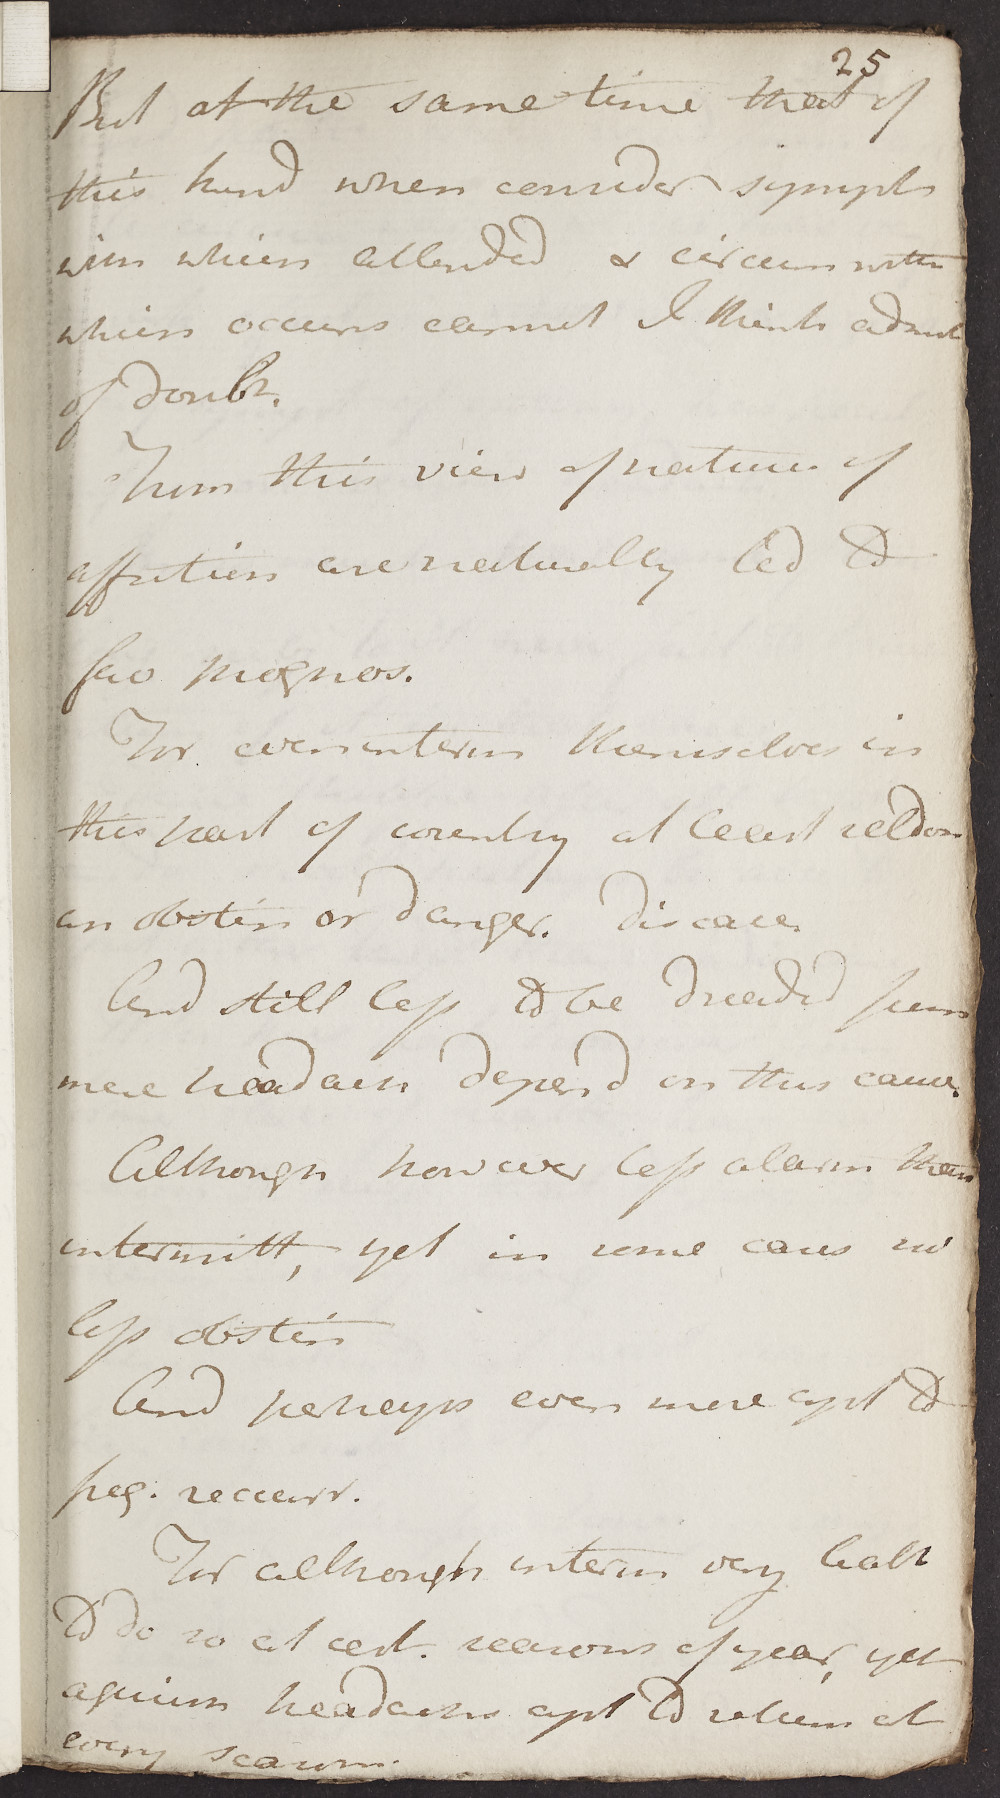 25
But at the same time that of
this kind when consider sympt
with which attended & circum with
which occurs cannot I think admit
of doubt.
From this view of nature of
affection are naturally led to
fav prognos.
For even interm themselves in
this part of country at least seldom
an obstin or danger. disease.
And still less to be dreaded from
mere headach depend on this cause.
Although however less alarm than
intermitt, yet in some cases no
less obstin
And perhaps even more apt to
freq. recurr.
For although interm very liable
to do so at cert. seasons of year, yet
aguish headachs apt to return at
every season.